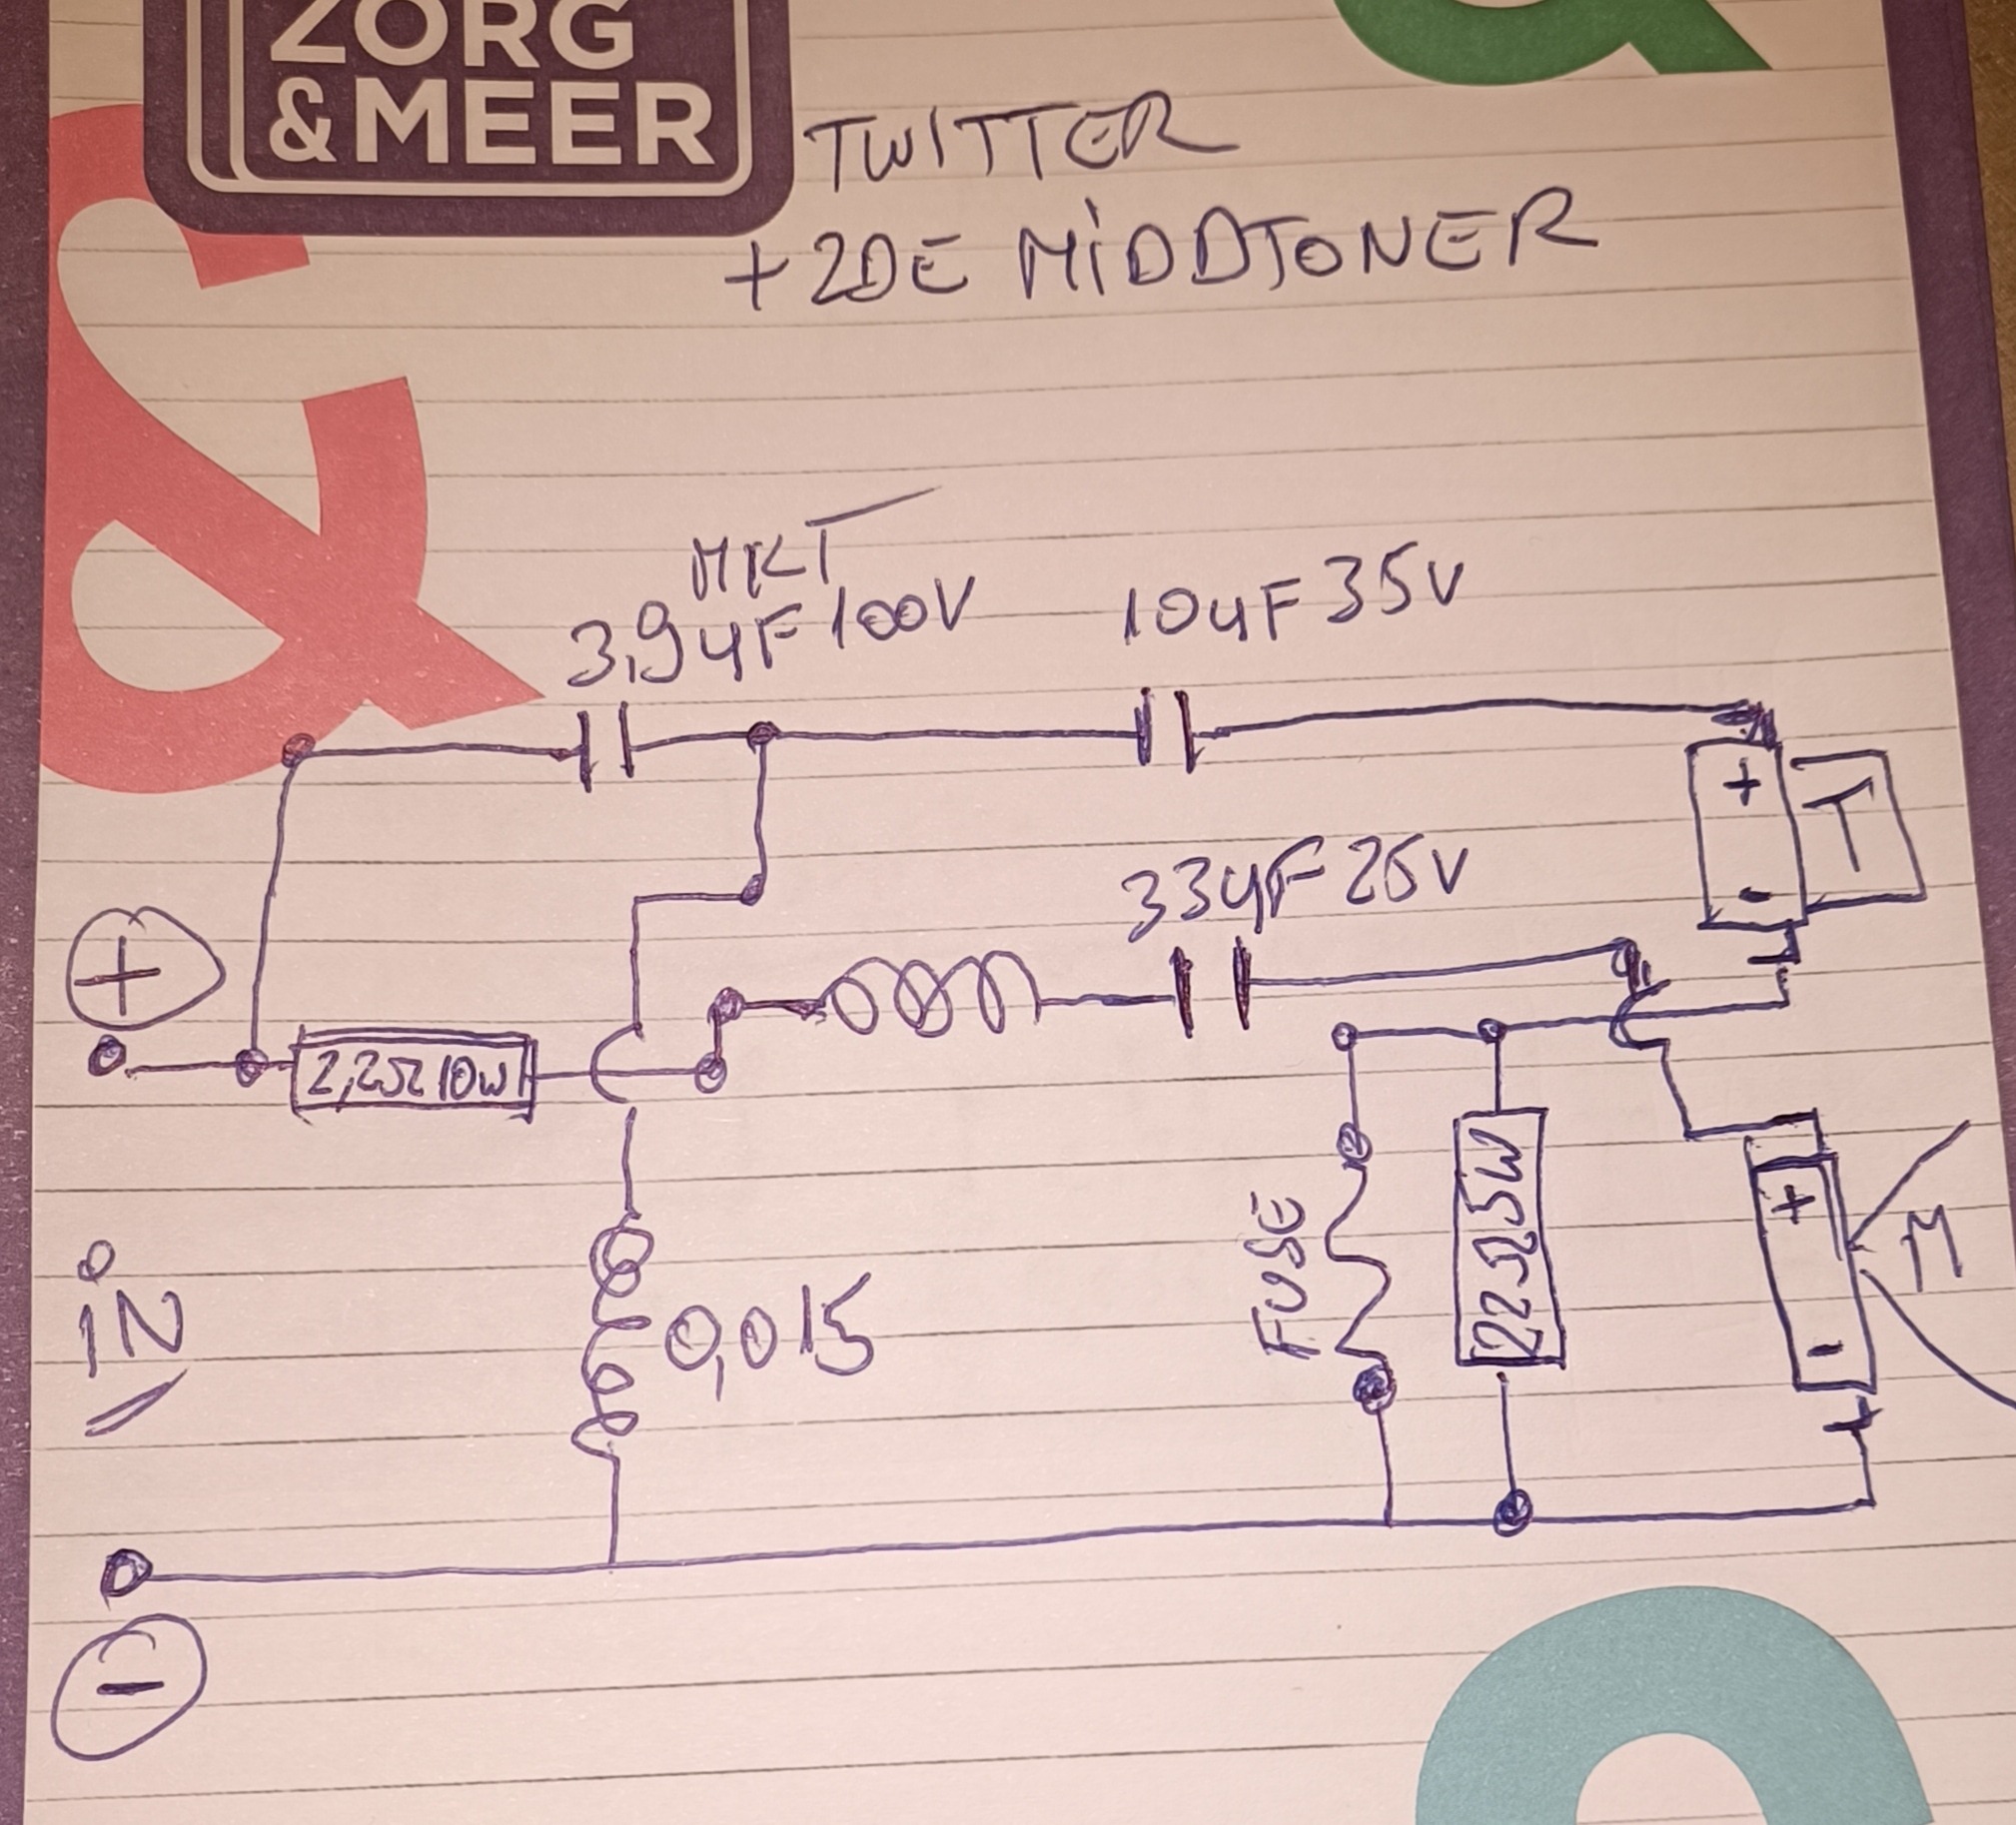 ZORG
&MEER
TWITTER
+2DE MiDDTONER
MKT
3,9uF 100V
10uF 35V
+
T
-
33uF 25V
+
2,2Ω 10W
iN
0,015
FUSE
22Ω 5W
+
M
-
-